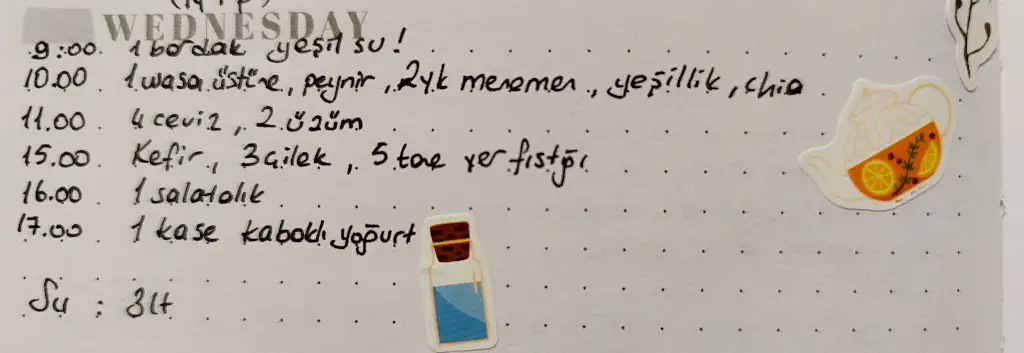 WEDNESDAY
9:00. 1 bardak yeşil su!
10.00 1 wasa üstüne, peynir, 2yk menemen, yeşillik, chia
11.00 4 ceviz, 2 üzüm
15.00. Kefir, 3 çilek, 5 tane yer fıstığı
16.00 1 salatalık
17.00 1 kase kabaklı yoğurt
Su : 3lt